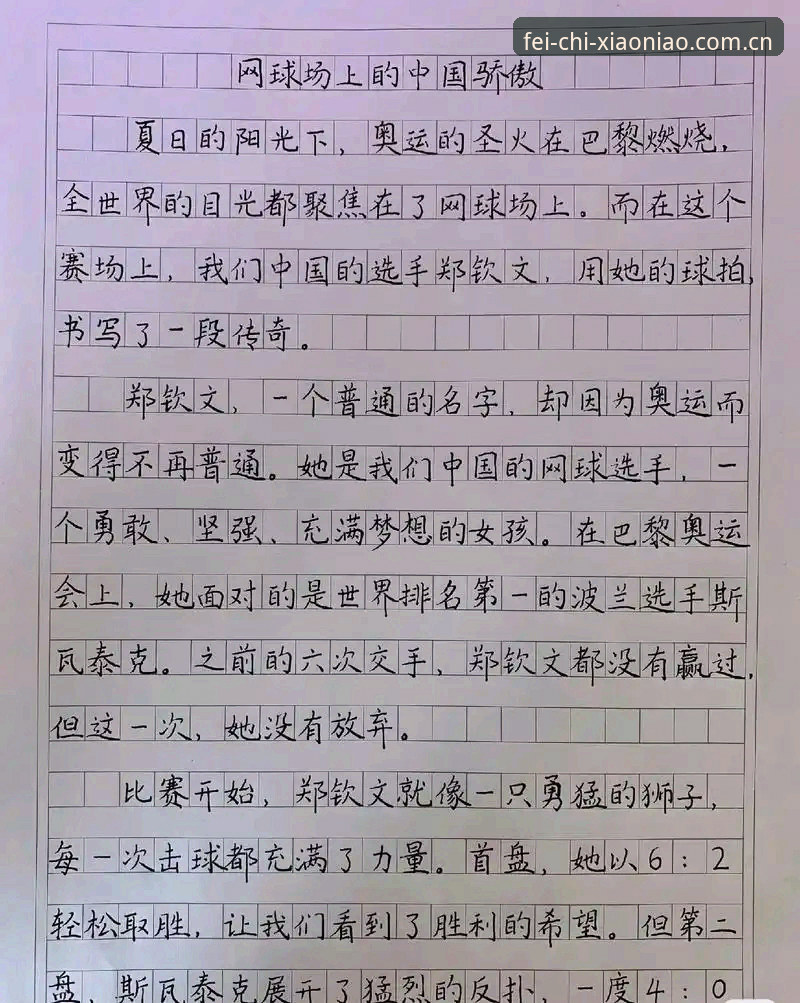 fei-chi-xiaoniao.com.cn
网球场上的中国骄傲
夏日的阳光下，奥运的圣火在巴黎燃烧，
全世界的目光都聚焦在了网球场上。而在这个
赛场上，我们中国的选手郑钦文，用她的球拍，
书写了一段传奇。
郑钦文，一个普通的名字，却因为奥运而
变得不再普通。她是我们中国的网球选手，一
个勇敢、坚强、充满梦想的女孩。在巴黎奥运
会上，她面对的是世界排名第一的波兰选手斯
瓦泰克。之前的六次交手，郑钦文都没有赢过，
但这一次，她没有放弃。
比赛开始，郑钦文就像一只勇猛的狮子，
每一次击球都充满了力量。首盘，她以6：2
轻松取胜，让我们看到了胜利的希望。但第二
盘，斯瓦泰克展开了猛烈的反扑，一度4：0